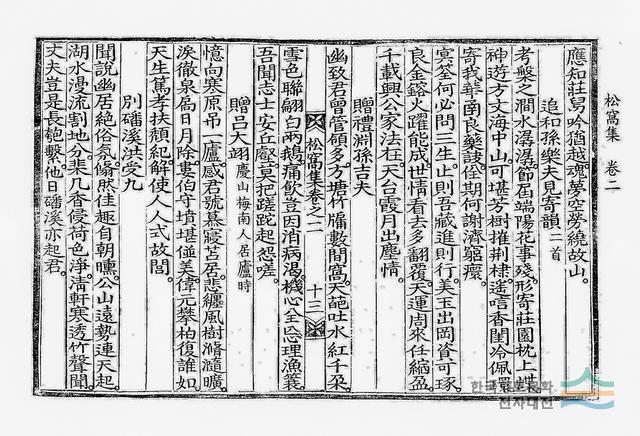 松窩集 卷二
應知莊舃吟猶越魂夢空勞繞故山
追和孫樂夫見寄韻二首
考槃之澗水潺潺節屆端陽花事殘形寄莊園枕上蝶
神遊方丈海中山可堪芳樹推荆棣遙唁香閨冷佩
寄我華南良藥該侄期何謝濟窮癏
冥筌何必問三生止則吾藏進則行美玉出岡資可琢
良金鎔火躍能成世情看去多翻覆天運周來任縮盈
千載興公家法在天台霞月出塵情
贈禮淵孫吉夫
幽致君曾管領多方塘竹牖數間窩天葩吐水紅千朶
松窩集卷之二 十三
雪色聯翩白兩鵝痛飮豈因消病渴機心全忘理漁簑
吾聞志士安丘壑莫把蹉跎起怨嗟
贈呂大翊慶山梅南人居廬時
憶向寒原弔一廬感君號慕寢苫居悲纏風樹滫瀡曠
淚徹泉扃日月除婁伯守墳堪倂美偉元攀柏復誰如
天生篤孝扶頹紀解使人人式故閭
別磻溪洪受九
聞說幽居絶俗氛翛然佳趣自朝曛公山遠勢連天起
湖水漫流割地分棐几香侵荷色淨淸軒寒透竹聲聞
丈夫豈是長匏繫他日磻溪亦起君
한국 문화
전자대전